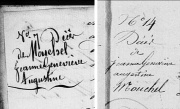 N° 7 Décès
de Mouchel
Jeanne Geneviève
Augustine
N° 14
Décès
de
jeanne Genevieve
augustine
Mouchel